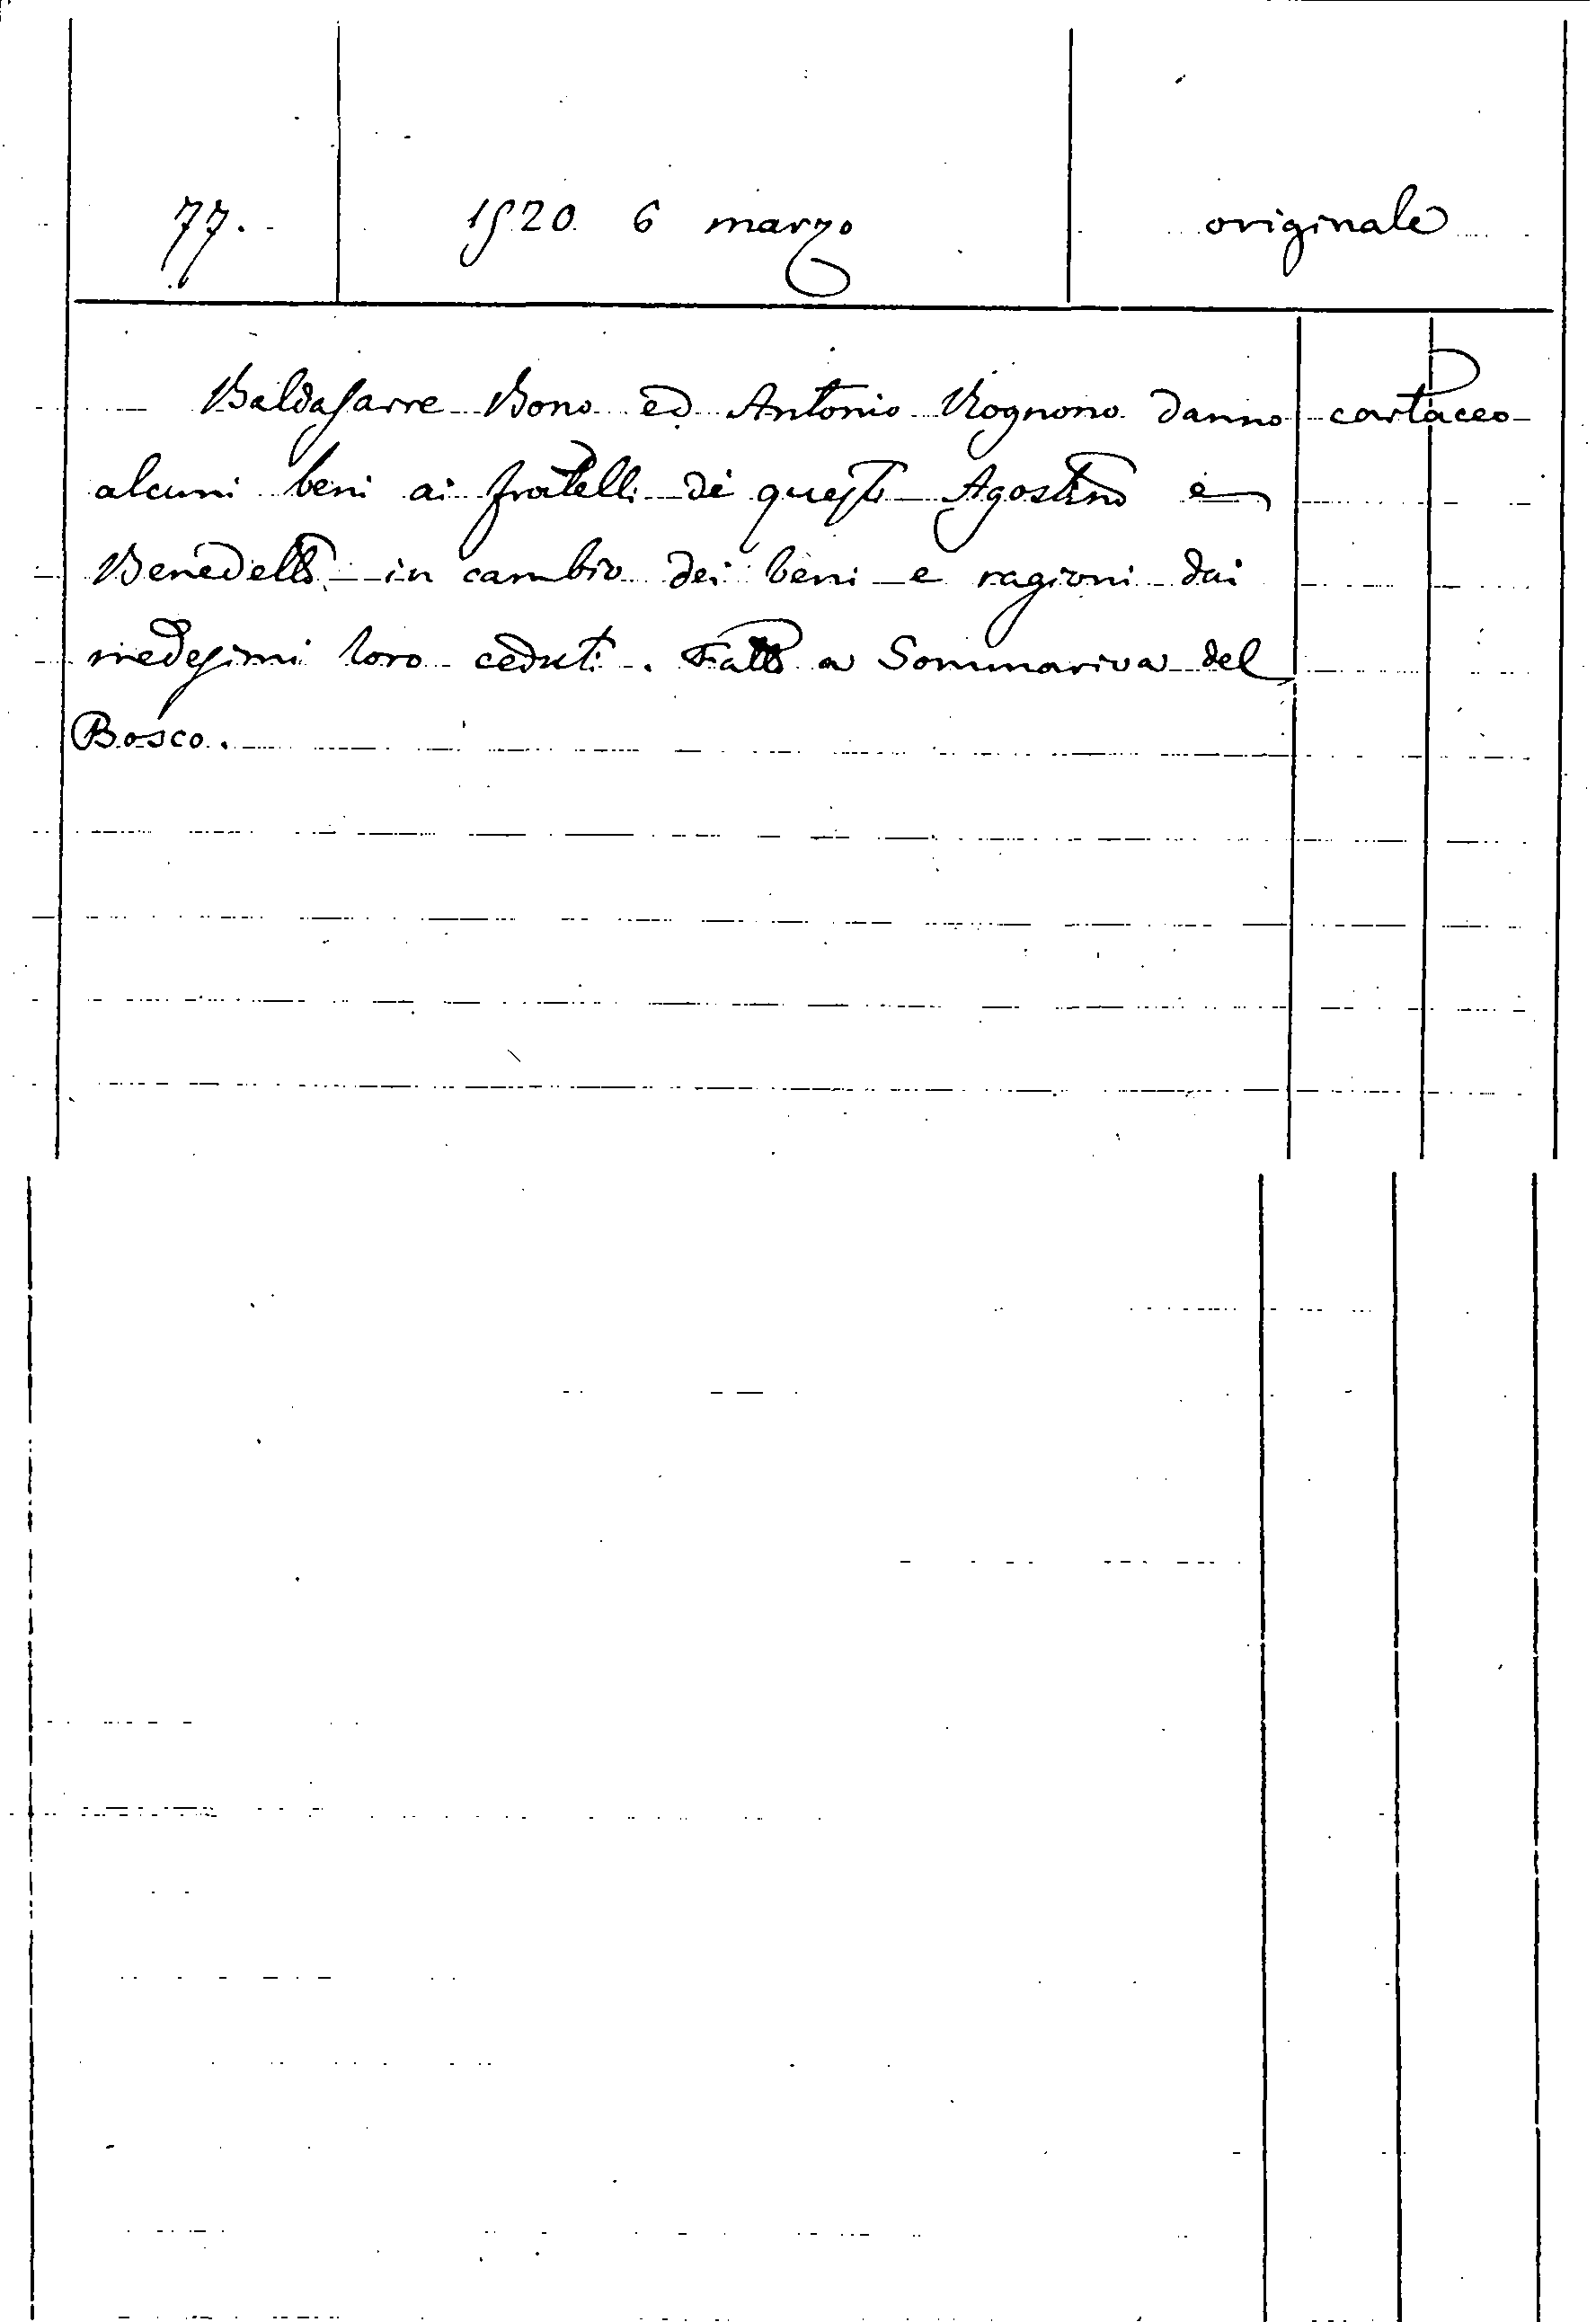 77. 1520 6 marzo originale
Baldassarre Bono ed Antonio Rognono danno cartaceo
alcuni beni ai fratelli di questi Agostino e
Benedetto in cambio dei beni e ragioni dai
medesimi loro ceduti. Fatto a Sommariva del
Bosco.